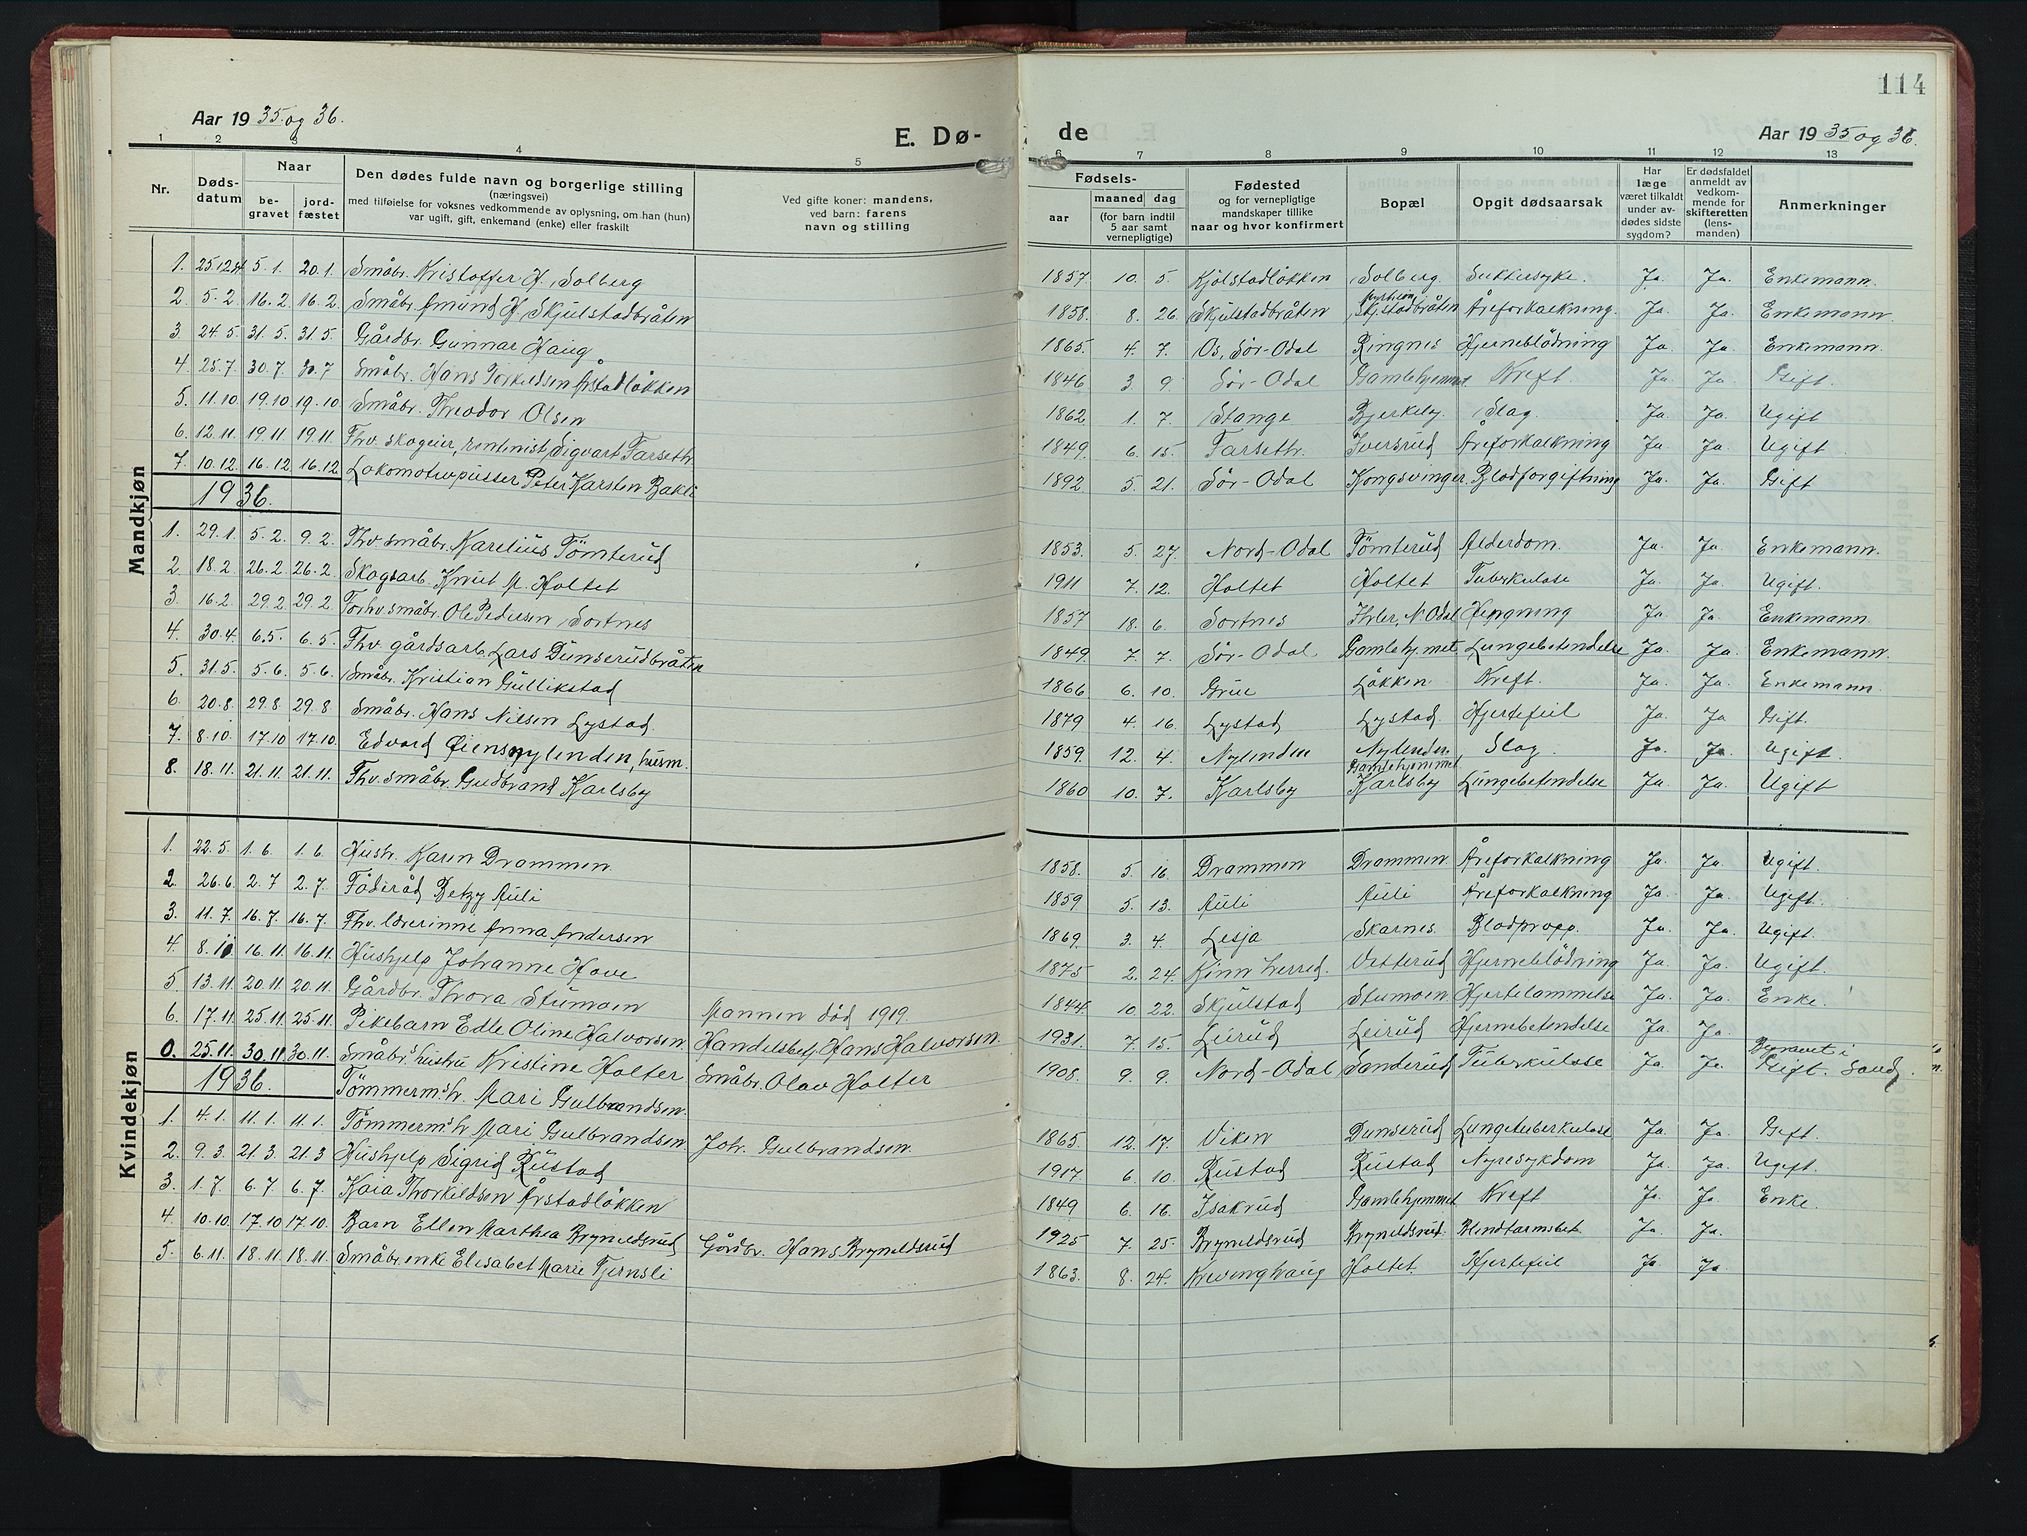 114
Aar 19 35 og 36.
E. Dø-
de
Aar 19 35 og 36.
1 2 3 4 5 6 7 8 9 10 11 12 13
Nr.
Dødsdatum
Naar
begravet
jordfæstet
Den dødes fulde navn og borgerlige stilling
(næringsvei)
med tilføielse for voksnes vedkommende av oplysning, om han (hun)
var ugift, gift, enkemand (enke) eller fraskilt
Ved gifte koner: mandens,
ved barn: farens
navn og stilling
Fødsels-
aar
maaned dag
(for barn indtil
5 aar samt
vernepligtige)
Fødested
og for vernepligtige
mandskaper tillike
naar og hvor konfirmert
Bopæl
Opgit dødsaarsak
Har
læge
været tilkaldt
under avdødes sidste
sygdom?
Er dødsfaldet
anmeldt av
vedkommende for
skifteretten
(lensmanden)
Anmerkninger
Mandkjøn
1. 25.12.34 5.1. 20.1. Småbr. Kristoffer H. Solberg 1857 10. 5. Kjölstadløkken Solberg Sukkersyke. Ja. Ja. Enkemann.
2. 5.2. 16.2. 16.2. Småbr. Amund H. Skjulstadbråten 1858. 8. 26 Skjulstadbråten Skjulstadbråten Åreforkalkning. Ja. Ja. Enkemann.
3. 24.5. 31.5. 31.5. Gårdbr. Gunnar Haug 1865. 4. 7. Os, Sør-Odal Ringnes Hjerneblödning Ja. Ja. Enkemann.
4. 25.7. 30.7. 30.7 Småbr. Hans Torkildsen Årstadløkken 1846 3 9. Sør-Odal Gamlehjemmet Kreft. Ja. Ja. Gift.
5. 11.10 19.10 19.10 Småbr. Theodor Olsen 1862. 1. 7. Stange Bjerkeby. Slag. Ja. Ja. Ugift
6. 12.11. 19.11. 19.11. Fhv. skogeier, rentenist, Sigvart Tarseth. 1849. 6. 15. Tarseth. Iversrud Åreforkalkning Ja. Ja. Ugift.
7. 10.12. 16.12 16.12 Lokomotivpusser Peter Karsten Bakli 1892. 5. 21. Sør-Odal Kongsvinger. Blodforgiftning Ja. Ja. Gift
1936.
1. 29.1. 5.2. 9.2. Fhv. småbr. Karelius Tömterud 1853. 5. 27. Nord-Odal Tömterud Alderdom. Ja. Ja. Enkemann.
2. 18.2. 26.2. 26.2. Skogsarb. Knut M. Holtet 1911 7. 12. Holtet Holtet Tuberkulose Ja. Ja. Ugift.
3. 16.2. 29.2. 29.2. Forhv. småbr. Ole Pedersen Sortnes 1857 18. 6. Sortnes N. Odal Hengning Ja. Ja. Enkemann.
4. 30.4. 6.5. 6.5. Fhv. gårdsarb. Lars Dunserudbråten 1849. 7. 7. Sør-Odal Gamlehj.met. Lungebetendelse Ja. Ja. Enkemann.
5. 31.5. 5.6. 5.6. Småbr. Kristian Gullikstad 1866 6. 10. Grue Løkken Kreft. Ja. Ja. Enkemann.
6. 20.8. 29.8. 29.8. Småbr. Hans Nilsen Lystad 1879 4. 16. Lystad Lystad. Hjertefeil Ja. Ja Gift.
7. 8.10. 17.10 17.10. Edvard Øiensnylenden, husm. 1859. 12. 4. Nylenden Nylenden. Slag. Ja. Ja. Ugift.
8. 18.11. 21.11. 21.11. Fhv. småbr. Gudbrand Karlsby 1860 10. 7. Karlsby Gamlehjemmet Karlsby Lungebetendelse Ja. Ja. Ugift
Kvindekjøn
1. 22.5. 1.6. 1.6. Hustr. Karen Drammen 1858. 5. 16. Drammen Drammen. Åreforkalkning Ja. Ja. Ugift.
2. 26.6. 2.7 2.7. Föderåd Betzy Auli 1859 5. 13. Auli Auli Åreforkalkning Ja. Ja. Ugift.
3. 11.7. 16.7. 16.7. Fhv. lærerinne Anna Andersen 1869. 3. 4. Lesja Skarnes. Blodpropp. Ja. Ja. Ugift.
4. 8.11 16.11. 16.11. Hushjelp Johanne Hove 1875 2. 24. Kinn herred. Vetterud Hjerneblödning Ja. Ja. Ugift.
5. 13.11. 20.11. 20.11. Gårdbr. Thora Stumoen Mannen död 1919. 1844. 10. 22. Skjulstad Stumoen Hjertelammelse Ja. Ja. Enke.
6. 17.11. 25.11. 25.11. Pikebarn Edle Oline Halvorsen. Handelsbetj. Hans Halvorsen. 1931. 7. 15. Leirud Leirud Hjernebetendelse Ja. Ja.
0. 25.11. 30.11. 30.11. Småbr.s hustru Kristine Holter Småbr. Olav Holter 1908. 9. 9. Nord-Odal Sanderud Tuberkulose Ja. Ja. Begravet i Gift. Sand.
1936. Tömmerm.s h. Mari Gulbrandsen.
1. 4.1. 11.1. 11.1. Tömmerm.s h. Mari Gulbrandsen. Joh. Gulbrandsen. 1865. 12. 17. Viken Dunserud Lungetuberkulose Ja. Ja. Gift.
2. 9.3. 21.3. 21.3 Hushjelp Sigrid Rustad 1917. 6. 10. Rustad Rustad Nyresykdom Ja. Ja. Ugift
3. 1.7. 6.7. 6.7. Kaia Thorkildsen Årstadløkken 1849 6. 16. Isakrud Gamlehjemmet Kreft Ja. Ja. Enke.
4. 10.10. 17.10 17.10. Barn Ellen Marthea Bryneldsrud Gårdbr. Hans Bryneldsrud 1925 7. 25. Bryneldsrud Bryneldsrud. Blindtarmsbet. Ja. Ja.
5. 6.11. 18.11 18.11. Småbr.enke Elisabet Marie Tjernsli 1863. 8. 24. Kvevinghaug Holtet. Hjertefeil Ja. Ja.